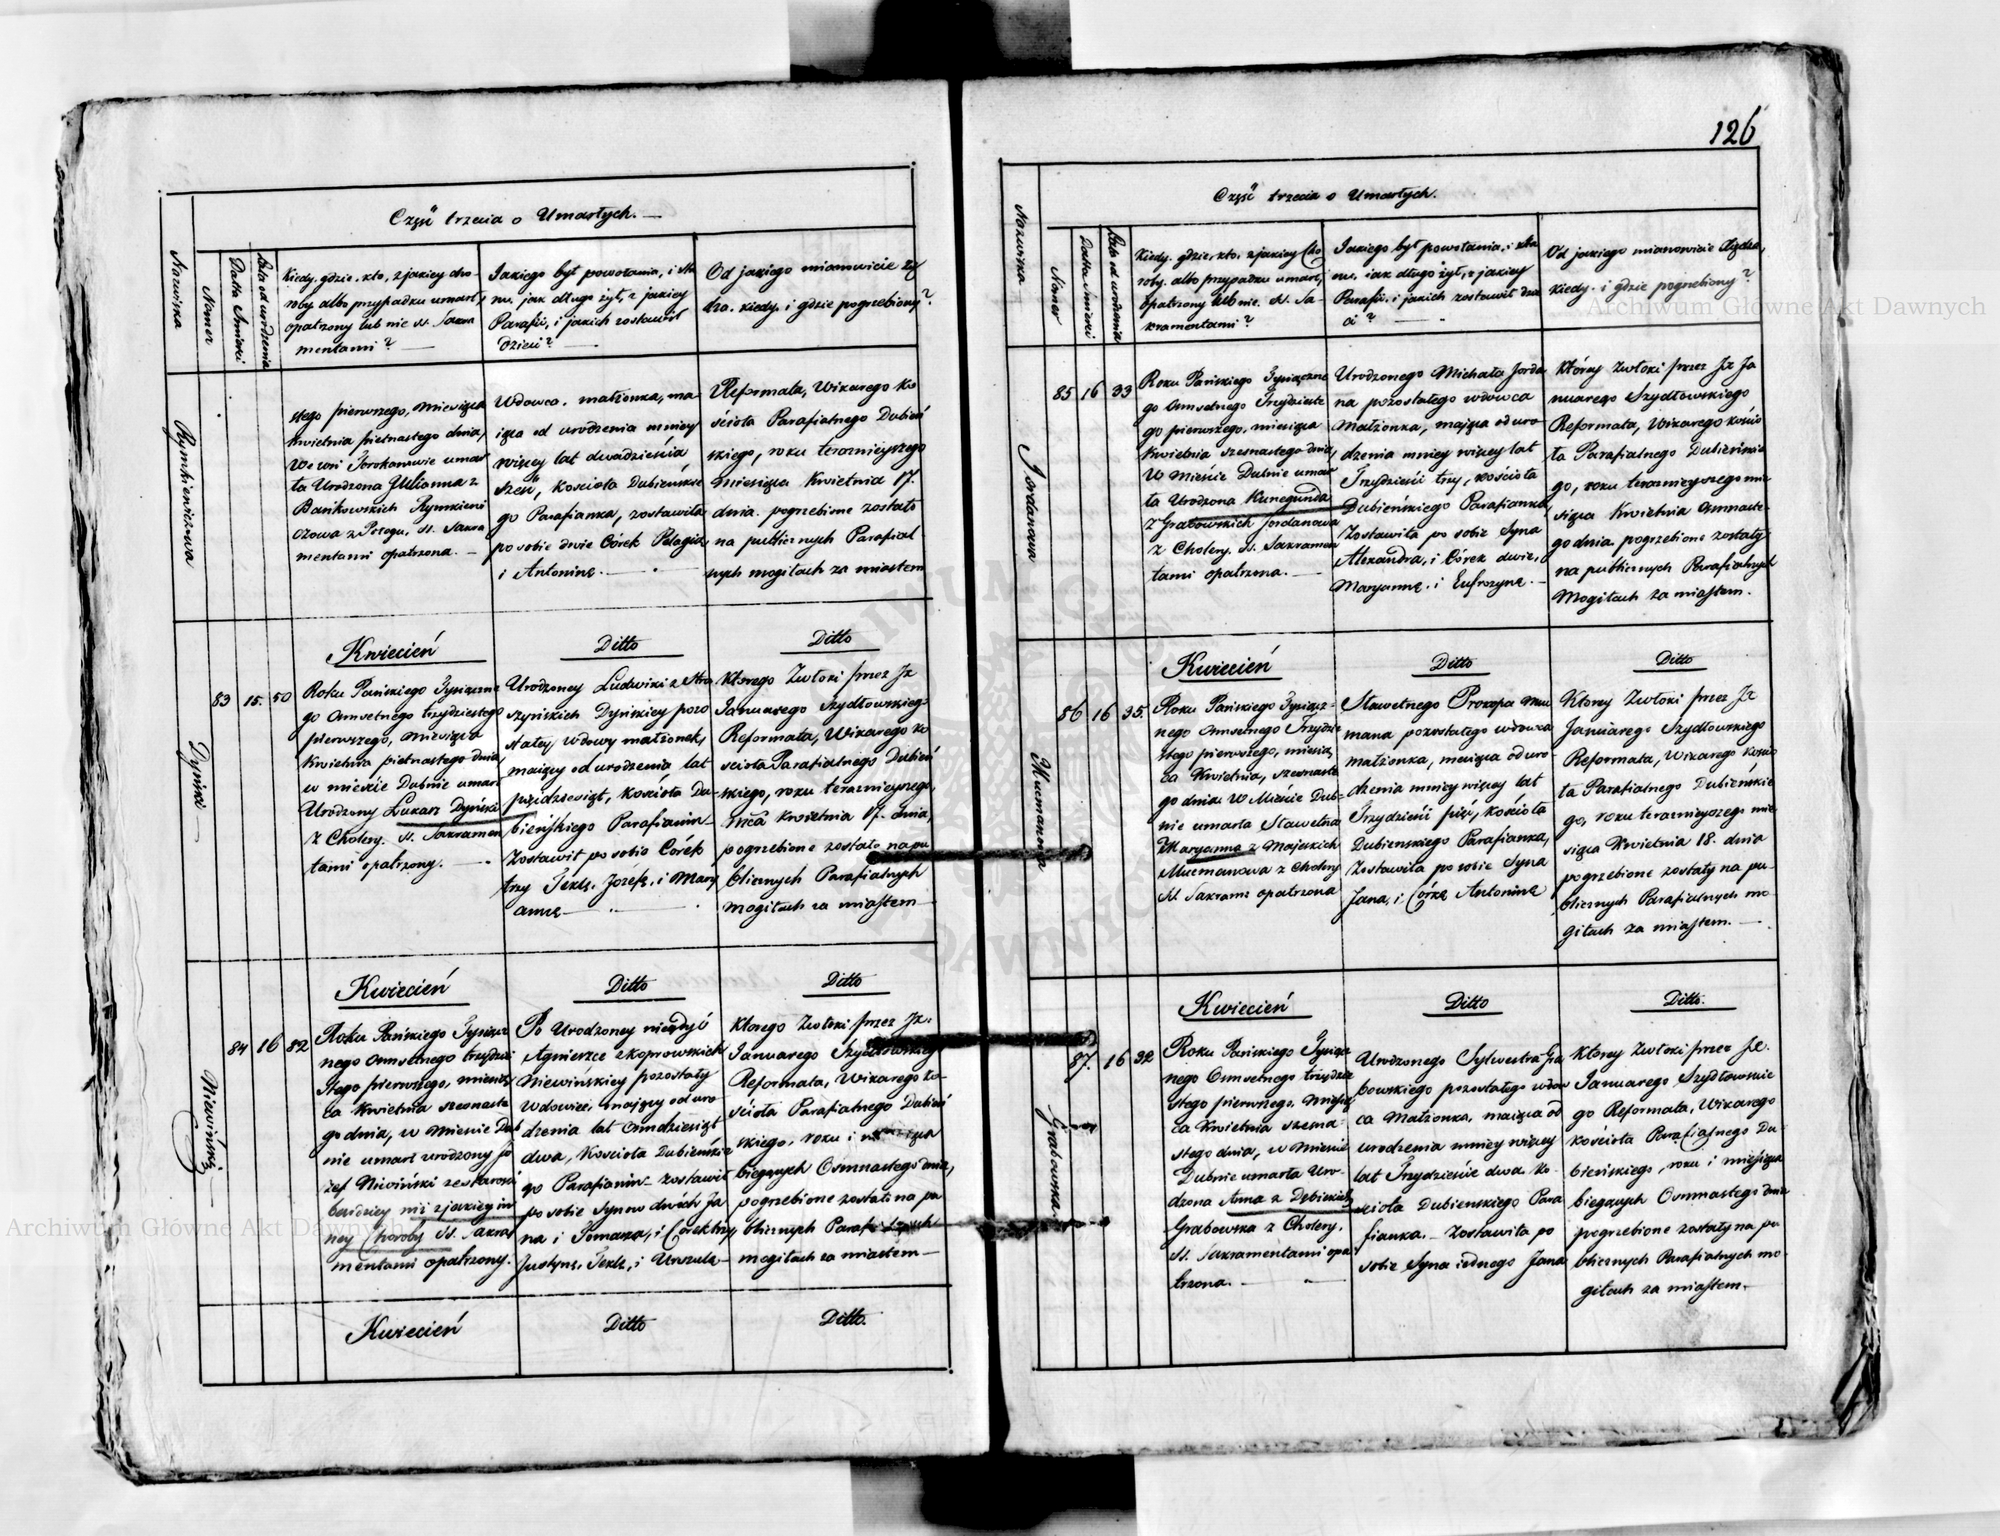 Część trzecia o Umarłych.
Nazwiska
Numer
Datta Smierci
Lata od urodzenia
Kiedy, gdzie, kto, z jakiey cho-
roby albo przypadku umarł,
opatrzony lub nie SS. Sakra
mentami?
Jakiego był powołania, i sta
nu, jak długo żył, z jakiey
Parafii, i jakich zostawił
Dzieci?
Od jakiego mianowicie Xię
dza, kiedy, i gdzie pogrzebiony?
Rymkiewiczowa
stego pierwszego, miesiąca
Kwietnia piętnastego dnia,
We wsi umar
ła Urodzona Julianna z
Bańkowskich Rymkiewi
czowa z Połogu, SS. Sakra
mentami opatrzona.
Wdowca, małżonka, ma
iąca od urodzenia mniey
więcey lat dwadzieścia
sześć, Kościoła Dubieńskie
go Parafianka, zostawiła
po sobie dwie Córek Pelagią
i Antoninę.
Reformata, Wikarego Ko
ścioła Parafialnego Dubień
skiego, roku teraznieyszego
Miesiąca Kwietnia 17.
dnia, pogrzebione zostało
na publicznych Parafial
nych mogiłach za miastem
Dyński
Kwiecień
Ditto
Ditto
83 15. 50
Roku Pańskiego Tysiączne
go Ośmsetnego trzydziestego
pierwszego, miesiąca
Kwietnia piętnastego dnia,
w mieście Dubnie umarł
Urodzony Łukasz Dyński
z Cholery, SS. Sakramen
tami opatrzony.
Urodzoney Ludwiki z Stra
szyńskich Dyńskiey pozo
stałey wdowy małżonek,
maiący od urodzenia lat
pięćdziesiąt, Kościoła Du-
bieńskiego Parafianin
Zostawił po sobie Córek
trzy Teklę, Jozefę, i Mary
annę
Którego Zwłoki przez JX
Januarego Szydłowskiego
Reformata, Wikarego Ko
ścioła Parafialnego Dubień
skiego, roku teraznieyszego,
Mca Kwietnia 17. dnia,
pogrzebione zostało na pu
blicznych Parafialnych
mogiłach za miastem
Niewiński
Kwiecień
Ditto
Ditto
84 16 82
Roku Pańskiego Tysiącz
nego Ośmsetnego trzydzie
stego pierwszego, miesią
ca Kwietnia szesnaste
go dnia, w mieście Dub
nie umarł urodzony Jó
zef Niewiński ze starości
bardziey niż z jakiey in
ney Choroby SS. Sakra
mentami opatrzony.
Po Urodzoney niegdyś
Agnieszce z Koprowskich
Niewińskiey pozostały
Wdowiec, maiący od uro
dzenia lat Ośmdziesiąt
dwa, Kościoła Dubieńskie
go Parafianin zostawił
po sobie Synow dwóch Ja
na i Tomasza, i Córek trzy
Justynę, Teklę, i Urszulę
Ktorego Zwłoki przez JX.
Januarego Szydłowskiego
Reformata, Wikarego Ko-
ścioła Parafialnego Dubień
skiego, roku i miesiąca
bieżących Ośmnastego dnia,
pogrzebione zostało na pu
blicznych Parafialnych
mogiłach za miastem
Kwiecień
Ditto
Ditto.
126
Część trzecia o Umarłych.
Nazwiska
Numer
Datta Smierci
Lata od urodzenia
Kiedy, gdzie, kto, z jakiey Cho
roby, albo przypadku umarł,
opatrzony lub nie, SS. Sa-
kramentami?
Jakiego był powołania, i sta
nu, jak długo żył, z jakiey
Parafii, i jakich zostawił dzie
ci?
Od jakiego mianowicie Xiędza,
kiedy, i gdzie pogrzebiony?
Jordanowa
85 16 33
Roku Pańskiego Tysiączne
go Ośmsetnego Trzydzieste
go pierwszego, miesiąca
Kwietnia szesnastego dnia,
W Mieście Dubnie umar
ła Urodzona Kunegunda
z Grabowskich Jordanowa
z Cholery, SS. Sakramen
tami opatrzona.
Urodzonego Michała Jorda
na pozostałego wdowca
Małżonka, maiąca od uro
dzenia mniey więcey lat
Trzydzieści trzy, Kościoła
Dubieńskiego Parafianka,
Zostawiła po sobie Syna
Alexandra, i Córek dwie,
Maryannę, i Eufrozynę.
Którey zwłoki przez JX Ja
nuarego Szydłowskiego
Reformata, Wikarego Kościo
ła Parafialnego Dubieńskie
go, roku teraznieyszego mie
siąca Kwietnia Osmnaste
go dnia pogrzebione zostały
na publicznych Parafialnych
Mogiłach za miastem.
Mucmanowa
Kwiecień
Ditto
Ditto
86 16 35.
Roku Pańskiego Tysiącz-
nego Ośmsetnego Trzydzie
stego pierwszego, miesią
ca Kwietnia, szesnaste
go dnia W Mieście Dub-
nie umarła Sławetna
Maryanna z Majeskich
Mucmanowa z Cholery
SS. Sakram: opatrzona
Sławetnego Prokopa Muc
mana pozostałego wdowca
małżonka, maiąca od uro
dzenia mniey więcey lat
Trzydzieści pięć, Kościoła
Dubienskiego Parafianka,
Zostawiła po sobie Syna
Jana, i Córkę Antoninę
Ktorey Zwłoki przez JX
Januarego Szydłowskiego
Reformata, Wikarego Kościo
ła Parafialnego Dubieńskie
go, roku teraznieyszego mie
siąca Kwietnia 18. dnia
pogrzebione zostały na pu-
blicznych Parafialnych mo
giłach za miastem.
Grabowska
Kwiecień
Ditto
Ditto.
87. 16 32
Roku Pańskiego Tysiącz
nego Ośmsetnego trzydzie
stego pierwszego, miesią
ca Kwietnia szesna-
stego dnia, w Mieście
Dubnie umarła Uro-
dzona Anna z Dębickich
Grabowska z Cholery,
SS. Sakramentami opa
trzona.
Urodzonego Sylwestra Gra
bowskiego pozostałego wdow
ca Małżonka, maiąca od
urodzenia mniey więcey
lat Trzydzieście dwa. Ko-
ścioła Dubienskiego Para
fianka. Zostawiła po
sobie Syna iednego Jana
Ktorey Zwłoki przez JX.
Januarego Szydłowskie
go Reformata, Wikarego
Kościoła Parafialnego Du-
bieńskiego, roku i miesiąca
bieżących Ośmnastego dnia
pogrzebione zostały na pu
blicznych Parafialnych mo-
giłach za miastem.
Archiwum Główne Akt Dawnych
Archiwum Główne Akt Dawnych